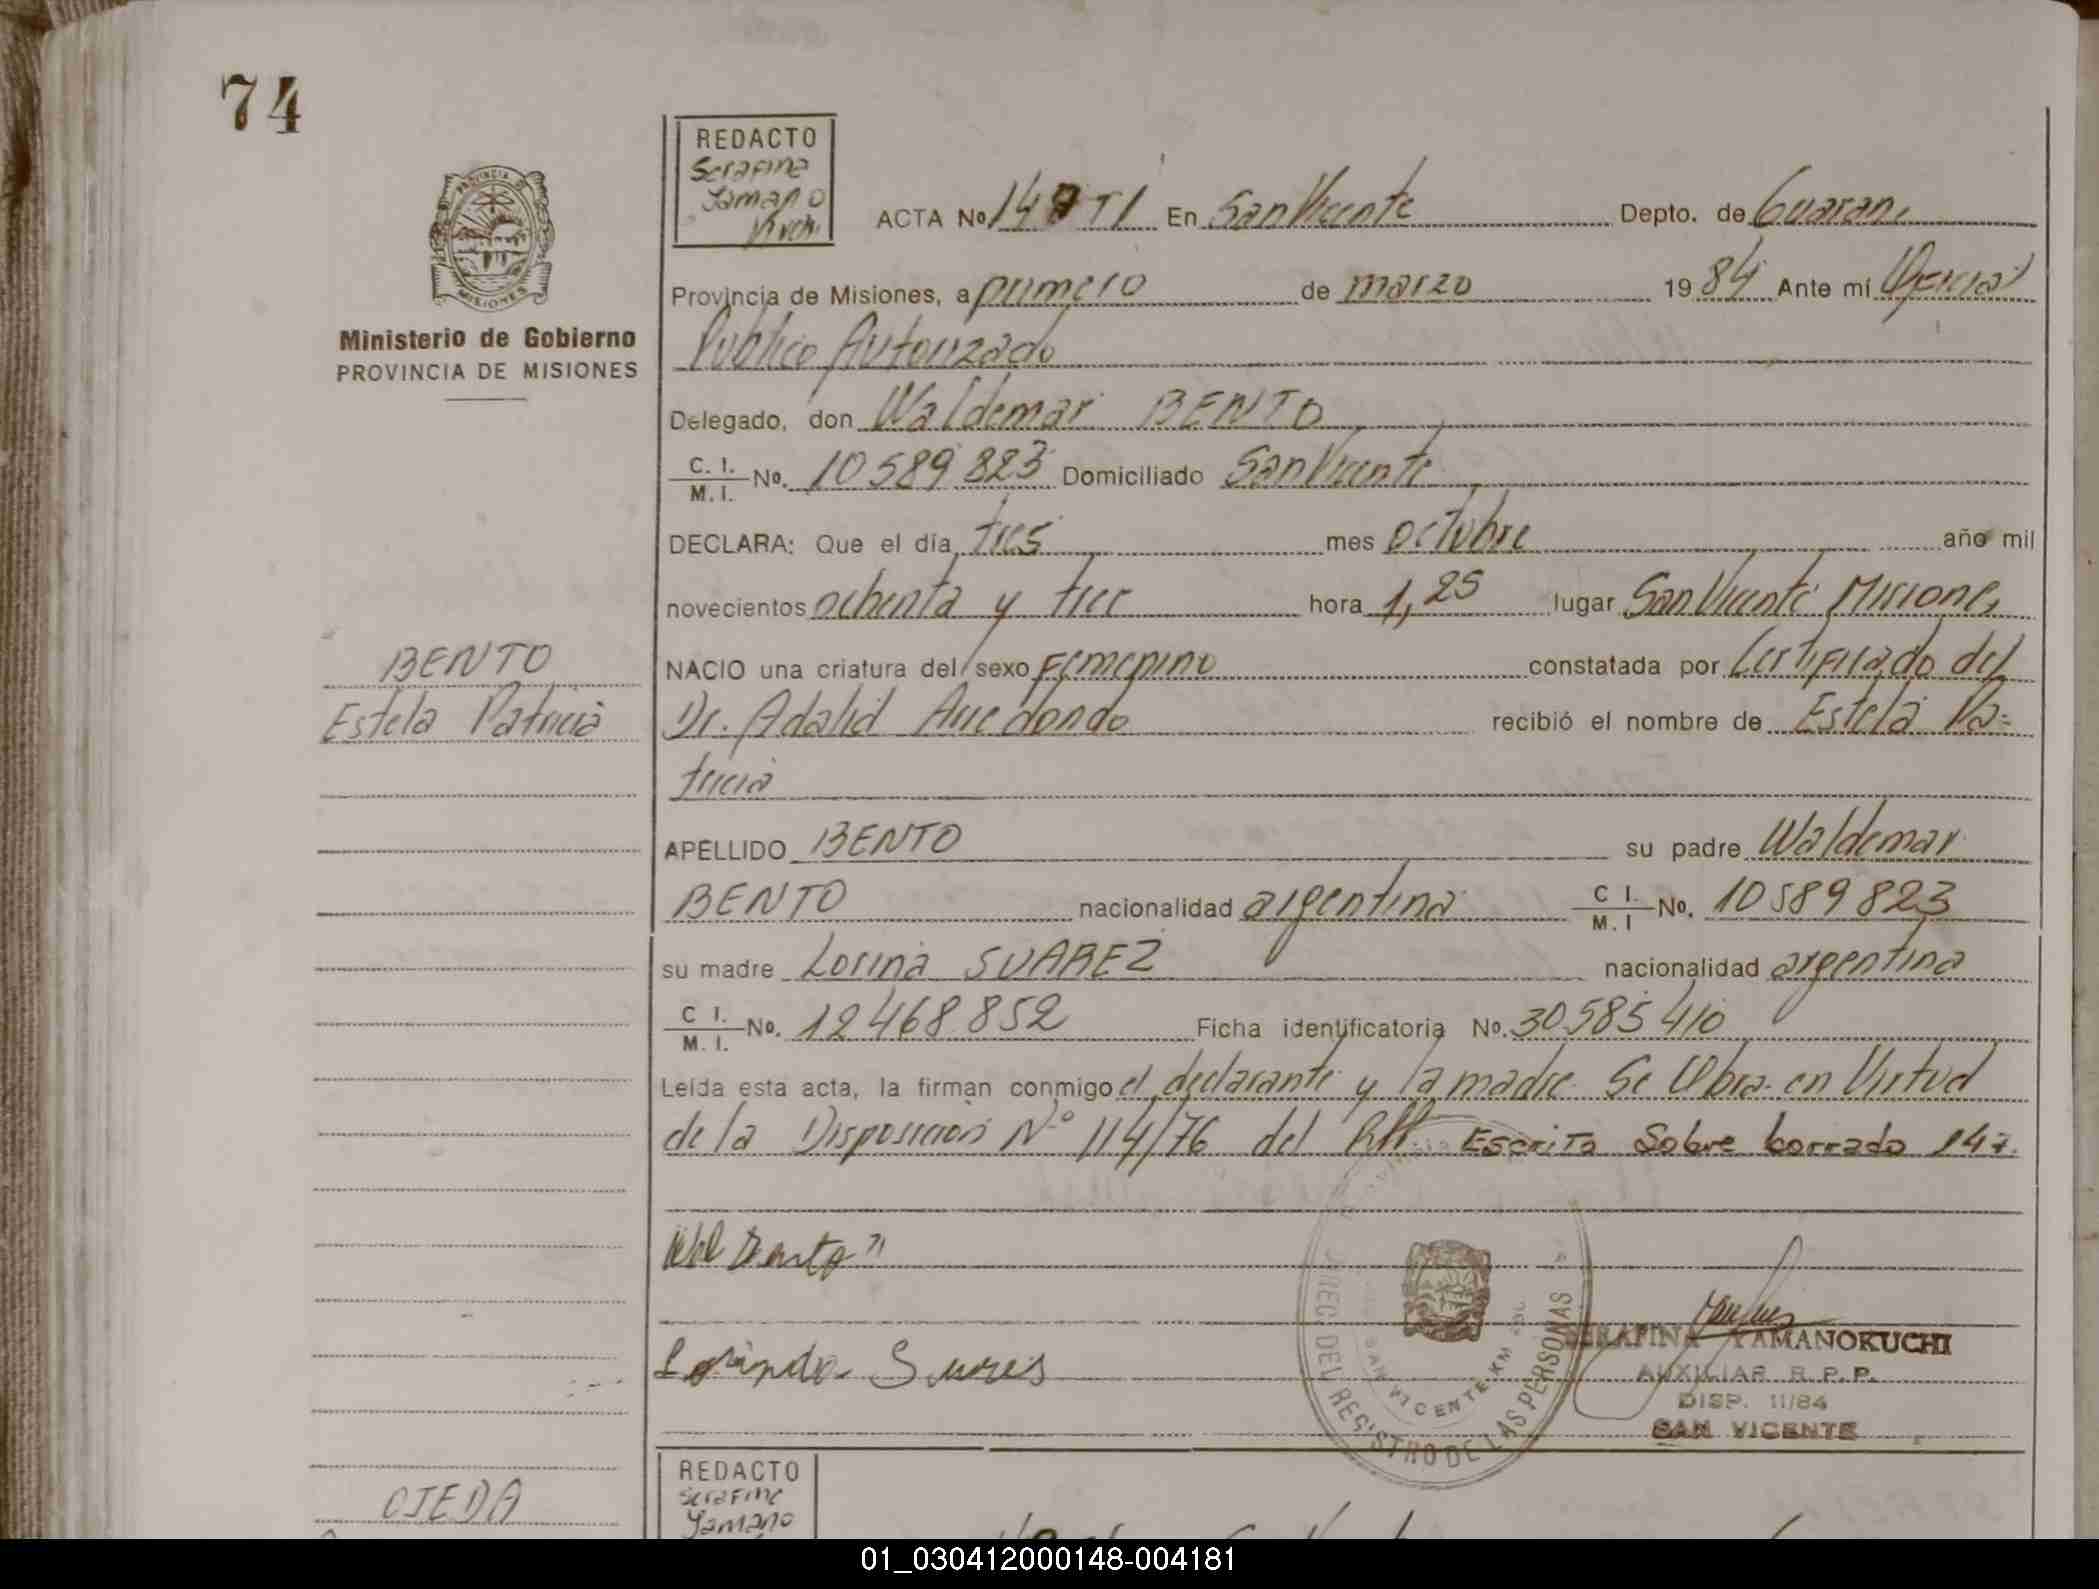 74
REDACTO
Serafina
Yamano
Kuch.
PROVINCIA D
MISIONES
Ministerio de Gobierno
PROVINCIA DE MISIONES
ACTA No 147 TI En San Vicente Depto. de Guarani
Provincia de Misiones, a primero de marzo 1984 Ante mí Oficial
Publico Autorizado
Delegado, don Waldemar BENTO
C. I. / M. I. No. 10589823 Domiciliado San Vicente
DECLARA: Que el día tres mes octubre año mil
novecientos ochenta y tres hora 1,25 lugar San Vicente Misiones
NACIO una criatura del sexo Femenino constatada por Certificado del
Dr. Adalid Arredondo recibió el nombre de Estela Pa=
tricia
BENTO
Estela Patricia
APELLIDO BENTO su padre Waldemar
BENTO nacionalidad argentina C I. / M. I No. 10589823
su madre Lorina SUAREZ nacionalidad argentina
C I. / M. I. No. 12468852 Ficha identificatoria No. 30585410
Leída esta acta, la firman conmigo el declarante y la madre. Se Obra en Virtud
de la Disposición Nº 114/76 del Escrito Sobre borrado 147.
Bento
DIREC. DEL REGISTRO DE LAS PERSONAS
SAN VICENTE KM
SERAFINA YAMANOKUCHI
AUXILIAR R. P. P.
DISP. 11/84
SAN VICENTE
REDACTO
Serafina
Yamano
OJEDA
01_030412000148-004181